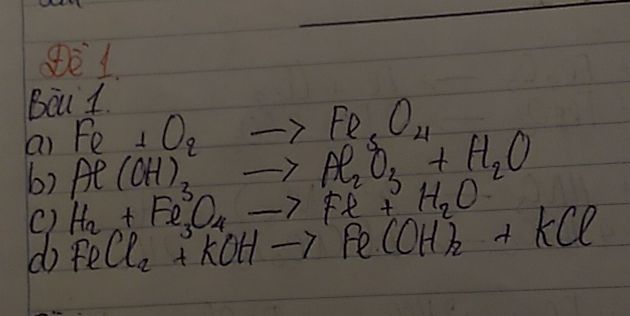 Đề 1.
Bài 1.
a) Fe + O₂ → Fe₃O₄
b) Al(OH)₃ → Al₂O₃ + H₂O
c) H₂ + Fe₃O₄ → Fe + H₂O
d) FeCl₂ + KOH → Fe(OH)₂ + KCl